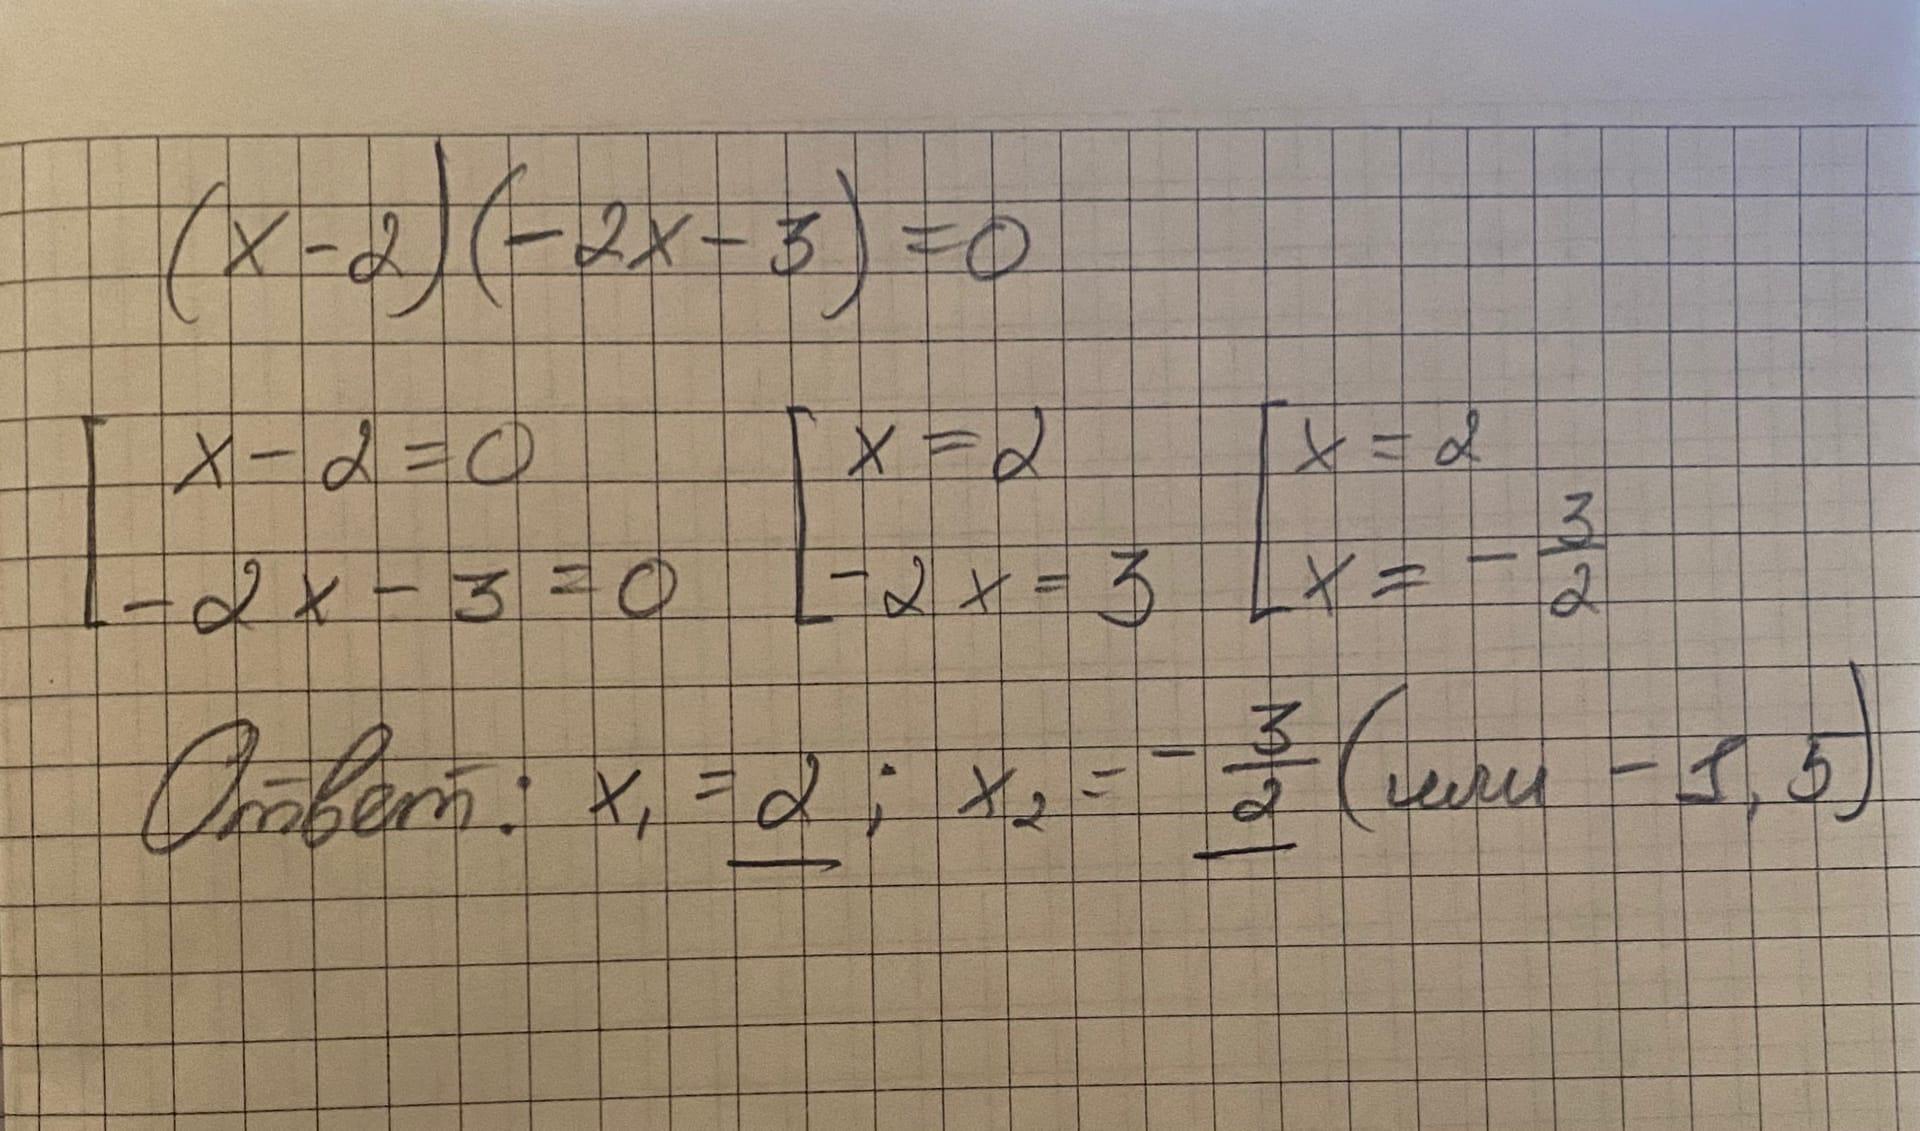 (x-2)(-2x-3)=0
[x-2=0 [x=2 [x=2
-2x-3=0 -2x=3 x=-3/2
Ответ: x₁=2; x₂=-3/2 (или -1,5)